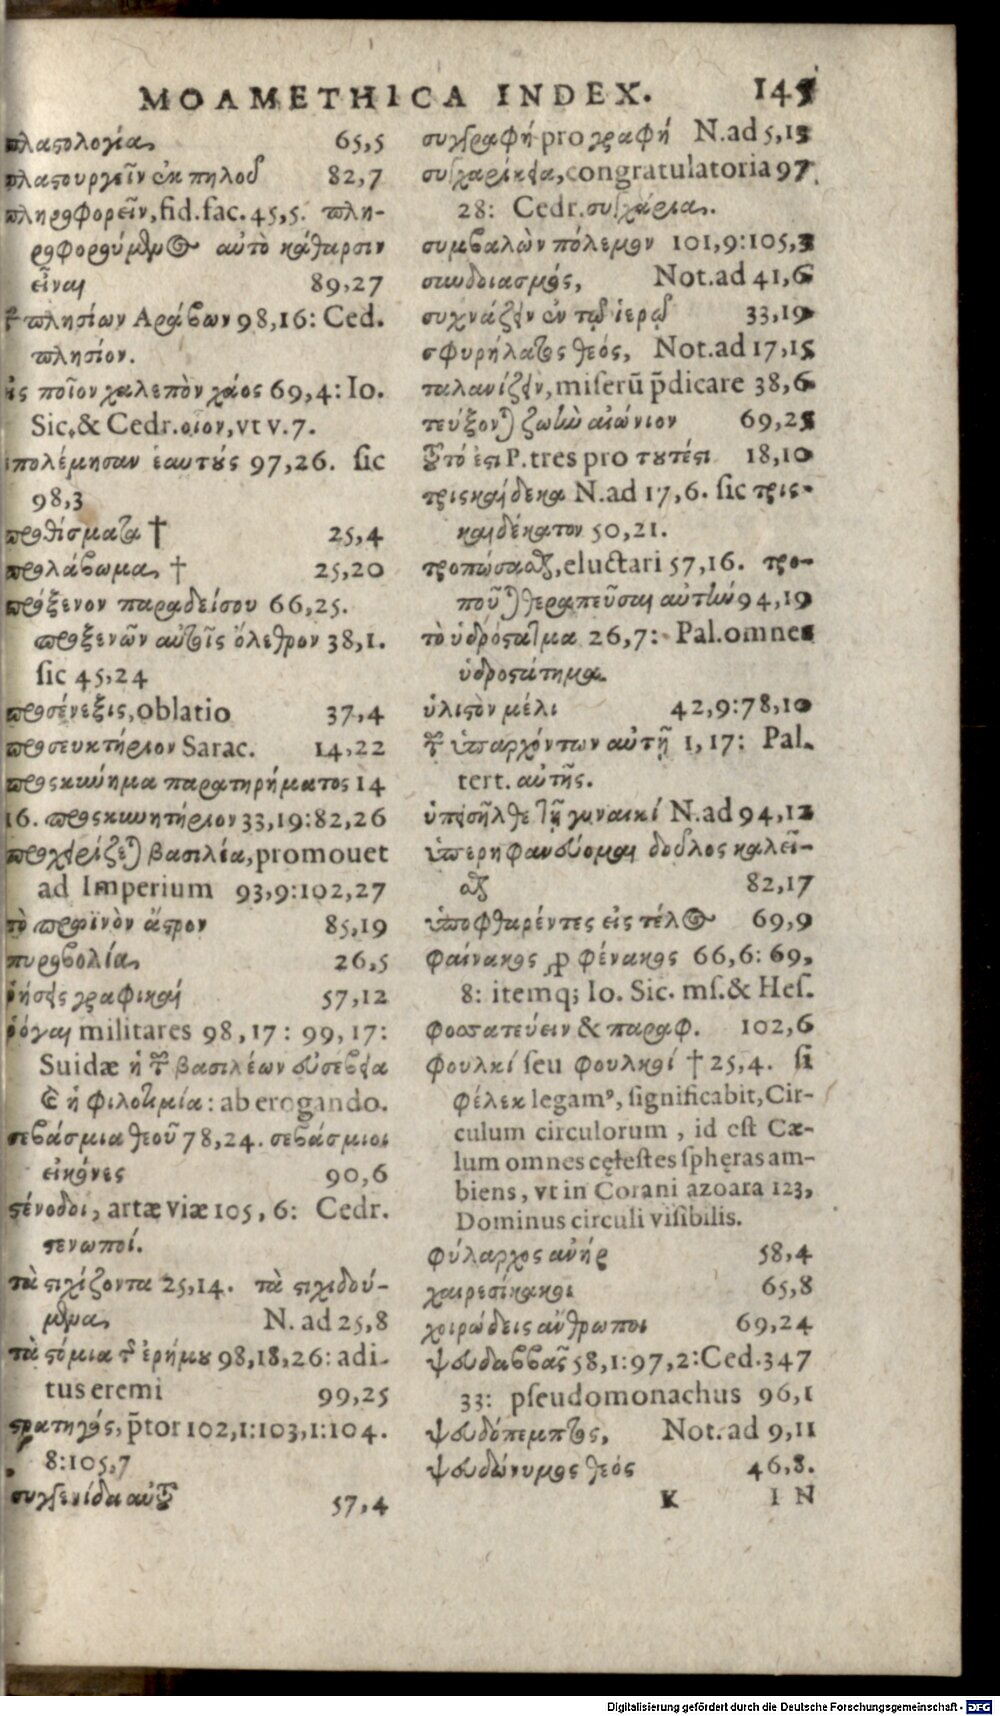 MOAMETHICA INDEX. 145
πλαστολογία 65,5
πλαστουργεῖν ἐκ πηλοῦ 82,7
πληροφορεῖν, fid. fac. 45,5. πλη-
ροφορούμενος αὐτὸ κάθαρσιν
εἶναι 89,27
τ πλησίων Αράβων 98,16: Ced.
πλησίον.
εἰς ποῖον χαλεπὸν χάος 69,4: Io.
Sic. & Cedr. οἷον, vt v. 7.
πολέμησαν ἑαυτούς 97,26. ſic
98,3
προθίσματα † 25,4
προλάβωμα † 25,20
πρόξενον παραδείσου 66,25.
προξενῶν αὐτοῖς ὄλεθρον 38,1.
ſic 45,24
προσένεξις, oblatio 37,4
προσευκτήριον Sarac. 14,22
προςκύνημα παρατηρήματος 14
16. προςκυνητήριον 33,19:82,26
προχειρίζεται βασιλέα, promouet
ad Imperium 93,9:102,27
τὸ πρωϊνὸν ἄστρον 85,19
πυροβολία 26,5
ῥήσεις γραφικαί 57,12
ῥόγαι militares 98,17: 99,17:
Suidæ ἡ τῶν βασιλέων εὐσέβεια
καὶ ἡ φιλοτιμία: ab erogando.
σεβάσμια θεοῦ 78,24. σεβάσμιοι
εἰκόνες 90,6
στένοδοι, artæ viæ 105,6: Cedr.
στενωποί.
τὰ στιχίζοντα 25,14. τὰ στιχιδού-
μενα N. ad 25,8
τὰ στόμια τῆς ἐρήμου 98,18,26: adi-
tus eremi 99,25
στρατηγός, p̄tor 102,1:103,1:104.
8:105,7
συγγενίδα αὐτοῦ 57,4
συγγραφή pro γραφή N. ad 5,13
συγχαρίκεια, congratulatoria 97
28: Cedr. συγχάρια.
συμβαλὼν πόλεμον 101,9:105,3
συνδοιασμός, Not. ad 41,6
συχνάζειν ἐν τῷ ἱερῷ 33,19
σφυρήλατος θεός, Not. ad 17,15
ταλανίζειν, miſerū p̄dicare 38,6
τεύξονται ζωὴν αἰώνιον 69,25
τοῦτό ἐστι P. tres pro τουτέστι 18,10
τριςκαίδεκα N. ad 17,6. ſic τρις-
καιδέκατον 50,21.
τροπώσασθαι, eluctari 57,16. τρο-
ποῦται θεραπεῦσαι αὐτὴν 94,19
τὸ ὑδρόσταμα 26,7: Pal. omnes
ὑδροστάτημα.
ὑλιστὸν μέλι 42,9:78,10
τῶν ὑπαρχόντων αὐτῇ 1,17: Pal.
tert. αὐτῆς.
ὑπεισῆλθε τῇ γυναικί N. ad 94,12
ὑπερηφανεύομαι δοῦλος καλεῖ-
σθαι 82,17
ὑποφθαρέντες εἰς τέλος 69,9
φαίνακος pro φένακος 66,6: 69,
8: itemq; Io. Sic. mſ. & Heſ.
φοσσατεύειν & παραφ. 102,6
φουλκί ſeu φουλκοί † 25,4. ſi
φέλεκ legamꝰ, ſignificabit, Cir-
culum circulorum, id eſt Cæ-
lum omnes cęleſtes ſphęras am-
biens, vt in Corani azoara 123,
Dominus circuli viſibilis.
φύλαρχος ἀνήρ 58,4
χαιρεσίκακοι 65,8
χοιρώδεις ἄνθρωποι 69,24
ψευδαββᾶς 58,1:97,2: Ced. 347
33: pſeudomonachus 96,1
ψευδόπεμπτος, Not. ad 9,11
ψευδώνυμος θεός 46,8.
K IN
Digitalisierung gefördert durch die Deutsche Forschungsgemeinschaft - DFG